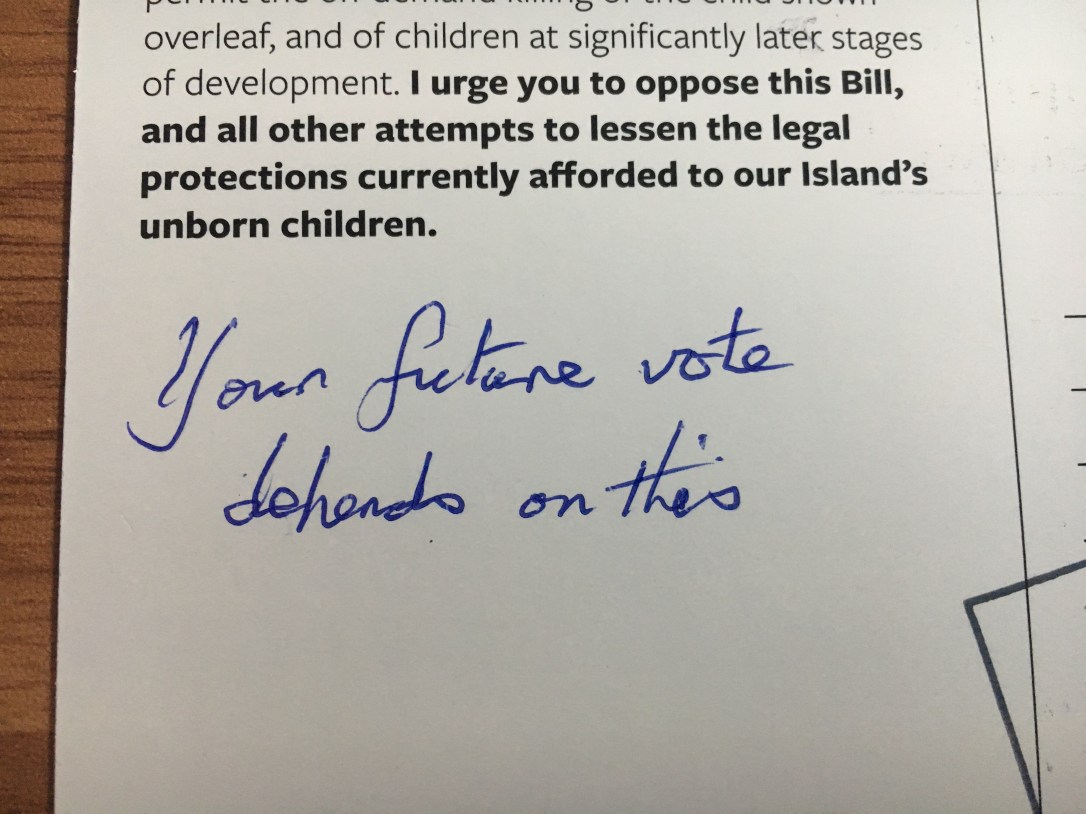 permit the on-demand killing of the child shown
overleaf, and of children at significantly later stages
of development. I urge you to oppose this Bill,
and all other attempts to lessen the legal
protections currently afforded to our Island's
unborn children.
Your future vote
depends on this